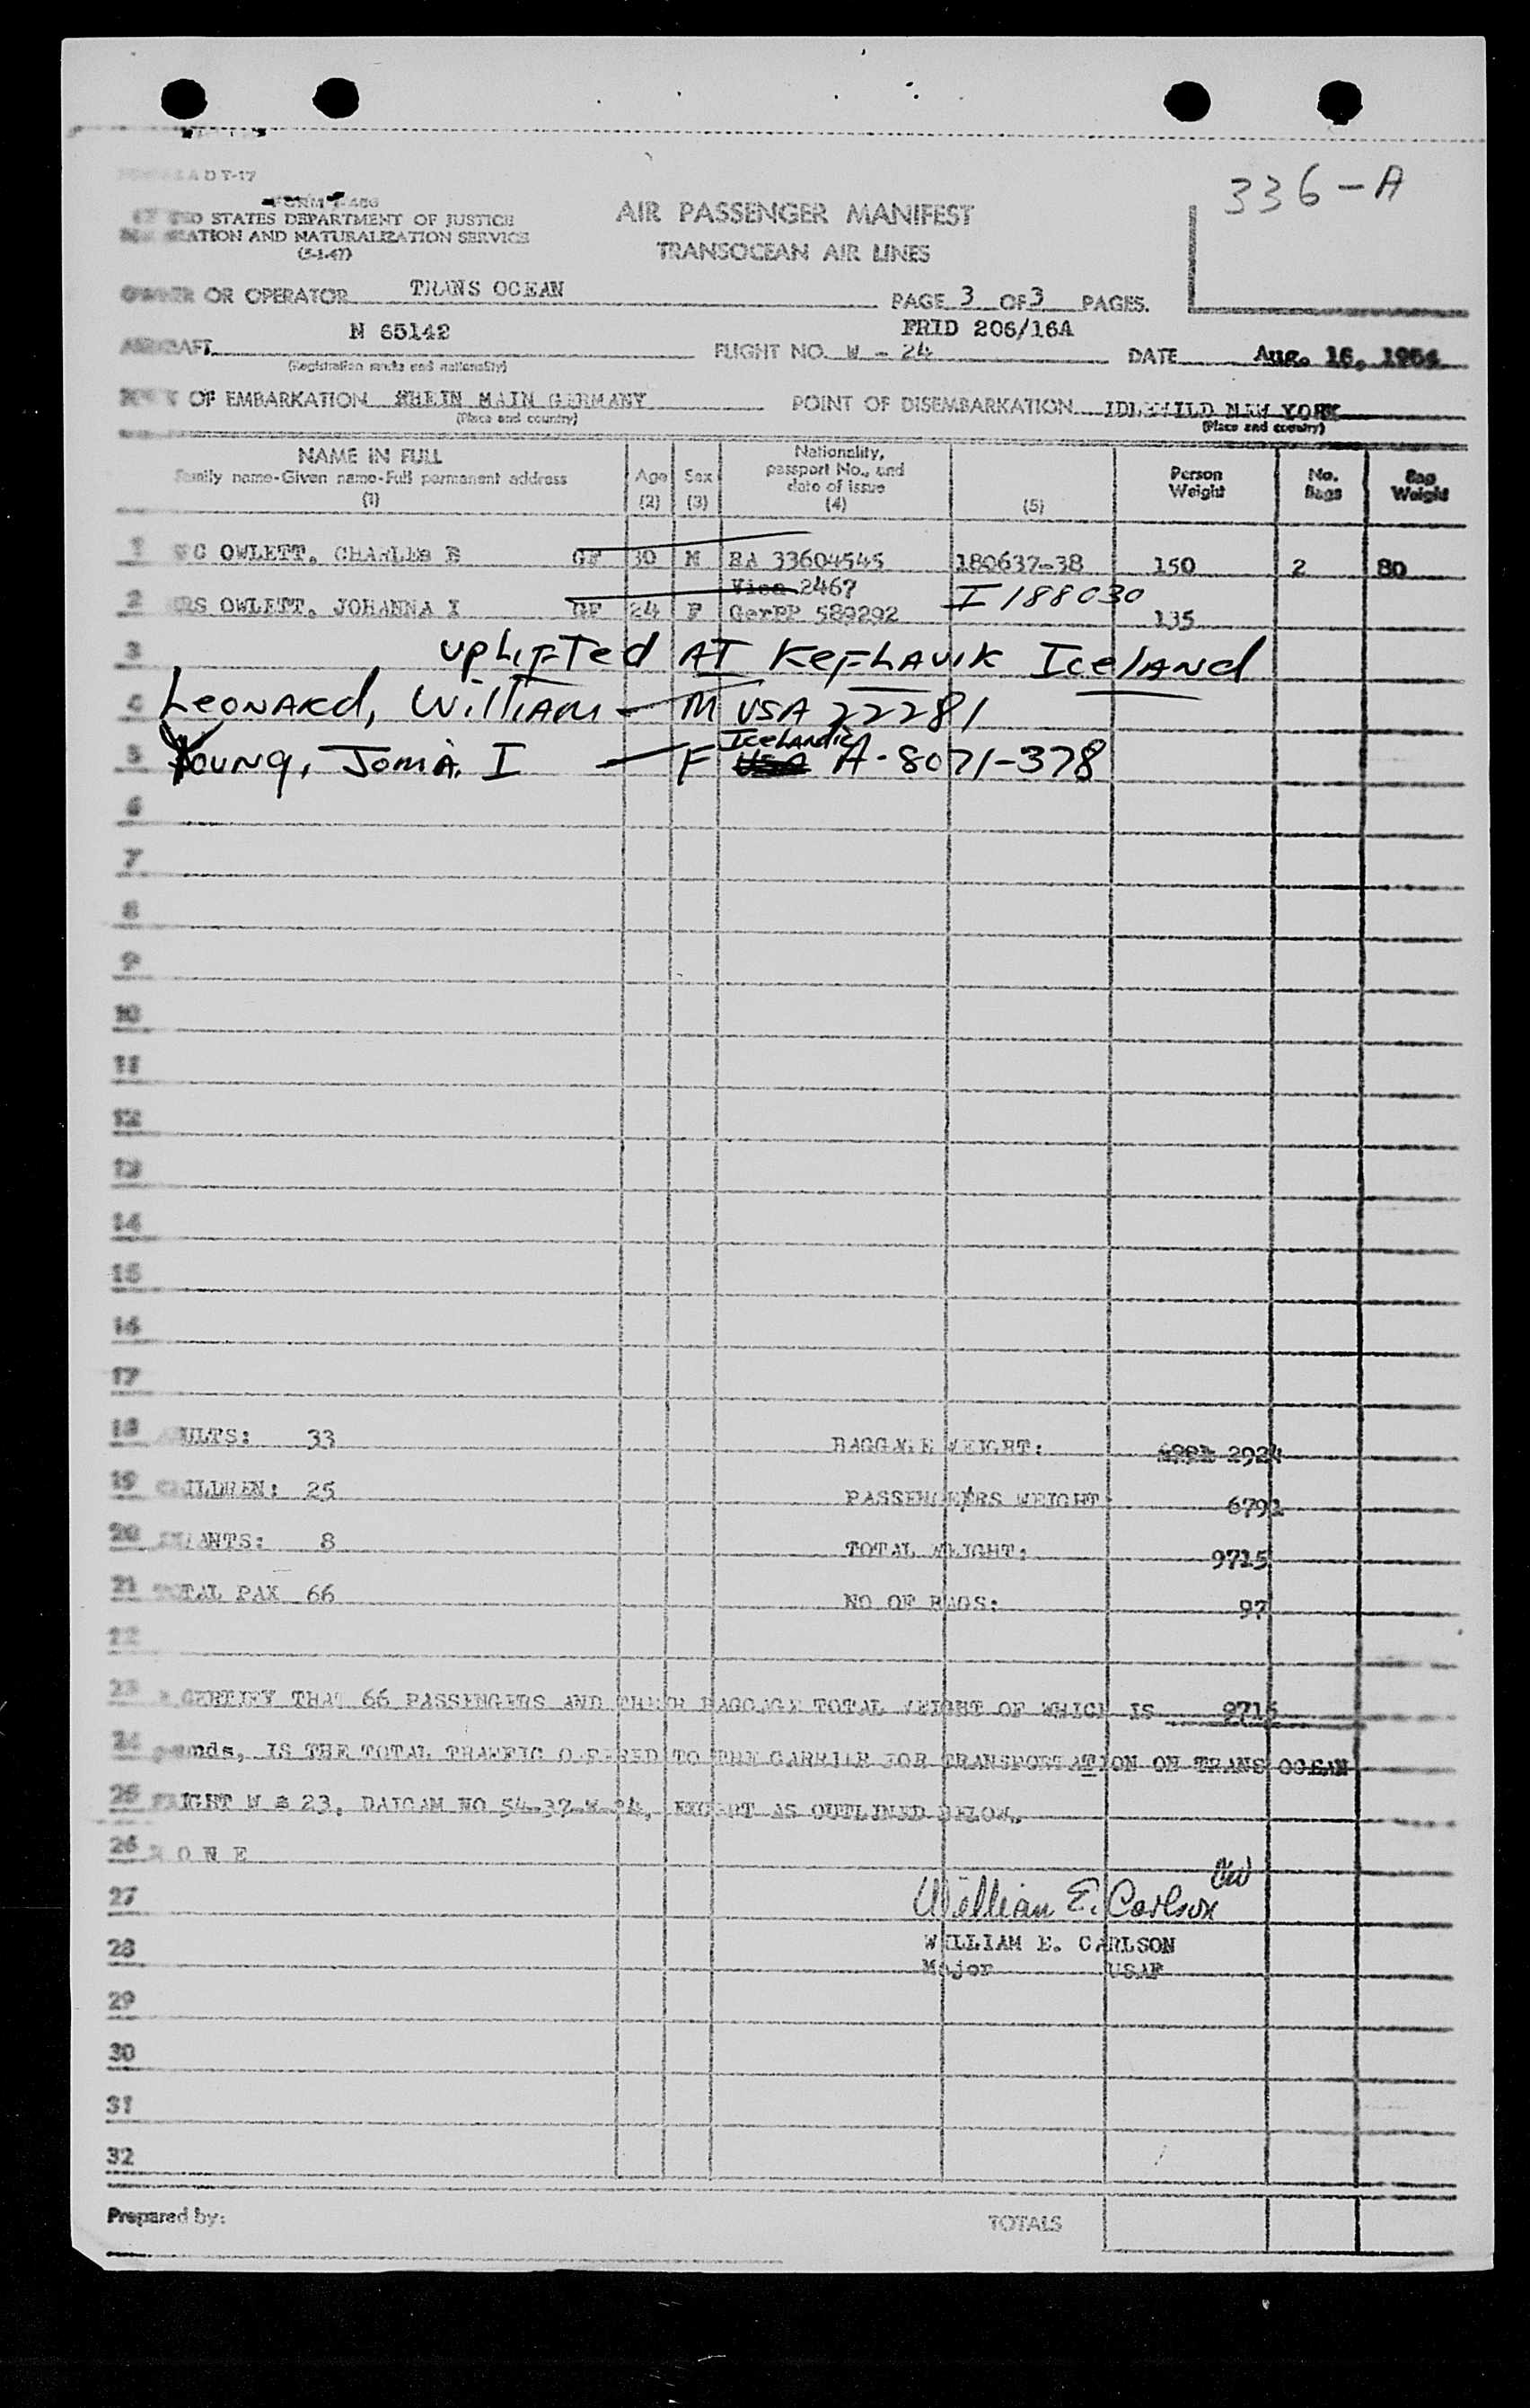 336-A
D T-17
FORM I-466
STATES DEPARTMENT OF JUSTICE
AND NATURALIZATION SERVICE
(5-1-47)
AIR PASSENGER MANIFEST
TRANSOCEAN AIR LINES
OWNER OR OPERATOR TRANS OCEAN PAGE 3 OF 3 PAGES.
AIRCRAFT N 65142 FLIGHT NO. W - 24 FRID 206/16A DATE Aug. 16, 1954
(Registration marks and nationality)
OF EMBARKATION RHEIN MAIN GERMANY POINT OF DISEMBARKATION IDLEWILD NEW YORK
(Place and country) (Place and country)
NAME IN FULL
Family name-Given name-Full permanent address
(1)
Age
(2)
Sex
(3)
Nationality,
passport No., and
date of issue
(4)
(5)
Person
Weight
No.
Bags
Bag
Weight
1 OWLETT, CHARLES E GF 30 M RA 33604545 180637-38 150 2 80
Visa 2467
2 RS OWLETT, JOHANNA I GF 24 F GerPP 589292 I 188030 135
3 UPLIFTed AT KEFLAVIK IceLANd
4 LeONARd, WillIAM - M USA 22281
5 YOUNG, JOMA. I - F IceLANdic USA A-8071-378
6
7
8
9
10
11
12
13
14
15
16
17
18 ULTS: 33 BAGGAGE WEIGHT: 2924
19 CHILDREN: 25 PASSENGERS WEIGHT 6791
20 INFANTS: 8 TOTAL WEIGHT: 9715
21 TOTAL PAX 66 NO OF BAGS: 97
22
23 I CERTIFY THAT 66 PASSENGERS AND THEIR BAGGAGE TOTAL WEIGHT OF WHICH IS 9715
24 pounds, IS THE TOTAL TRAFFIC OFFERED TO THE CARRIER FOR TRANSPORTATION ON TRANS OCEAN
25 FLIGHT W = 23, DAICAM NO 54-37-W-24, EXCEPT AS OUTLINED BELOW.
26 N O N E
27 William E. Carlson
28 WILLIAM E. CARLSON
Major USAF
29
30
31
32
Prepared by: TOTALS